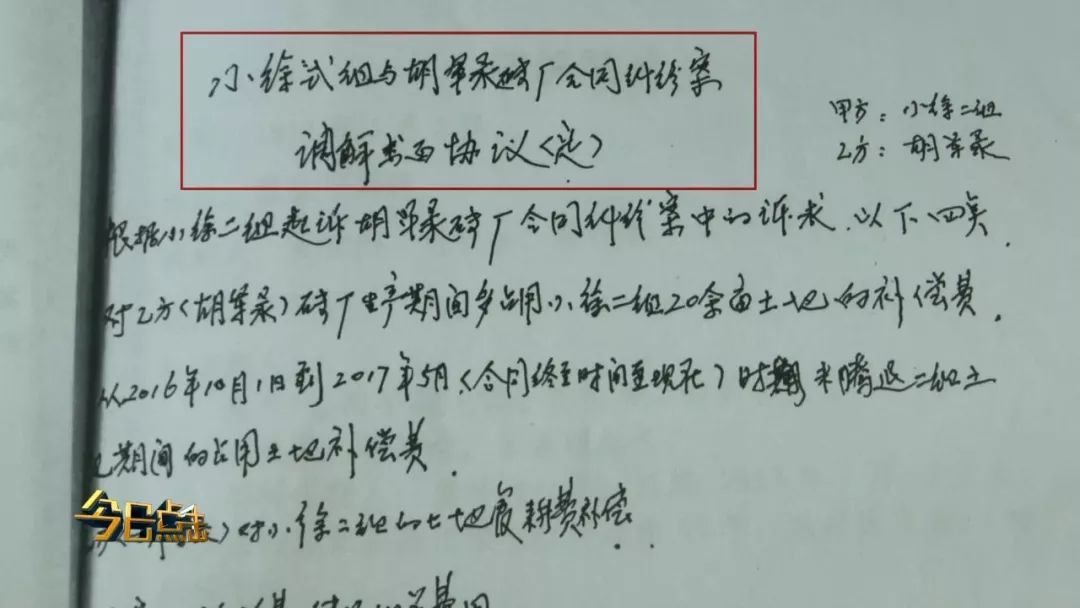 小徐弍组与胡军录砖厂合同纠纷案
调解书面协议(定)
甲方：小徐二组
乙方：胡军录
根据小徐二组起诉胡军录砖厂合同纠纷案中的诉求，以下四点.
对乙方(胡军录)砖厂生产期间多占用小徐二组20余亩土地的补偿费.
从2016年10月1日到2017年5月(合同终至时间至现在)时期未腾退二组土
地期间的占用土地补偿费.
对小徐二组的土地复耕费补偿.
今日点击